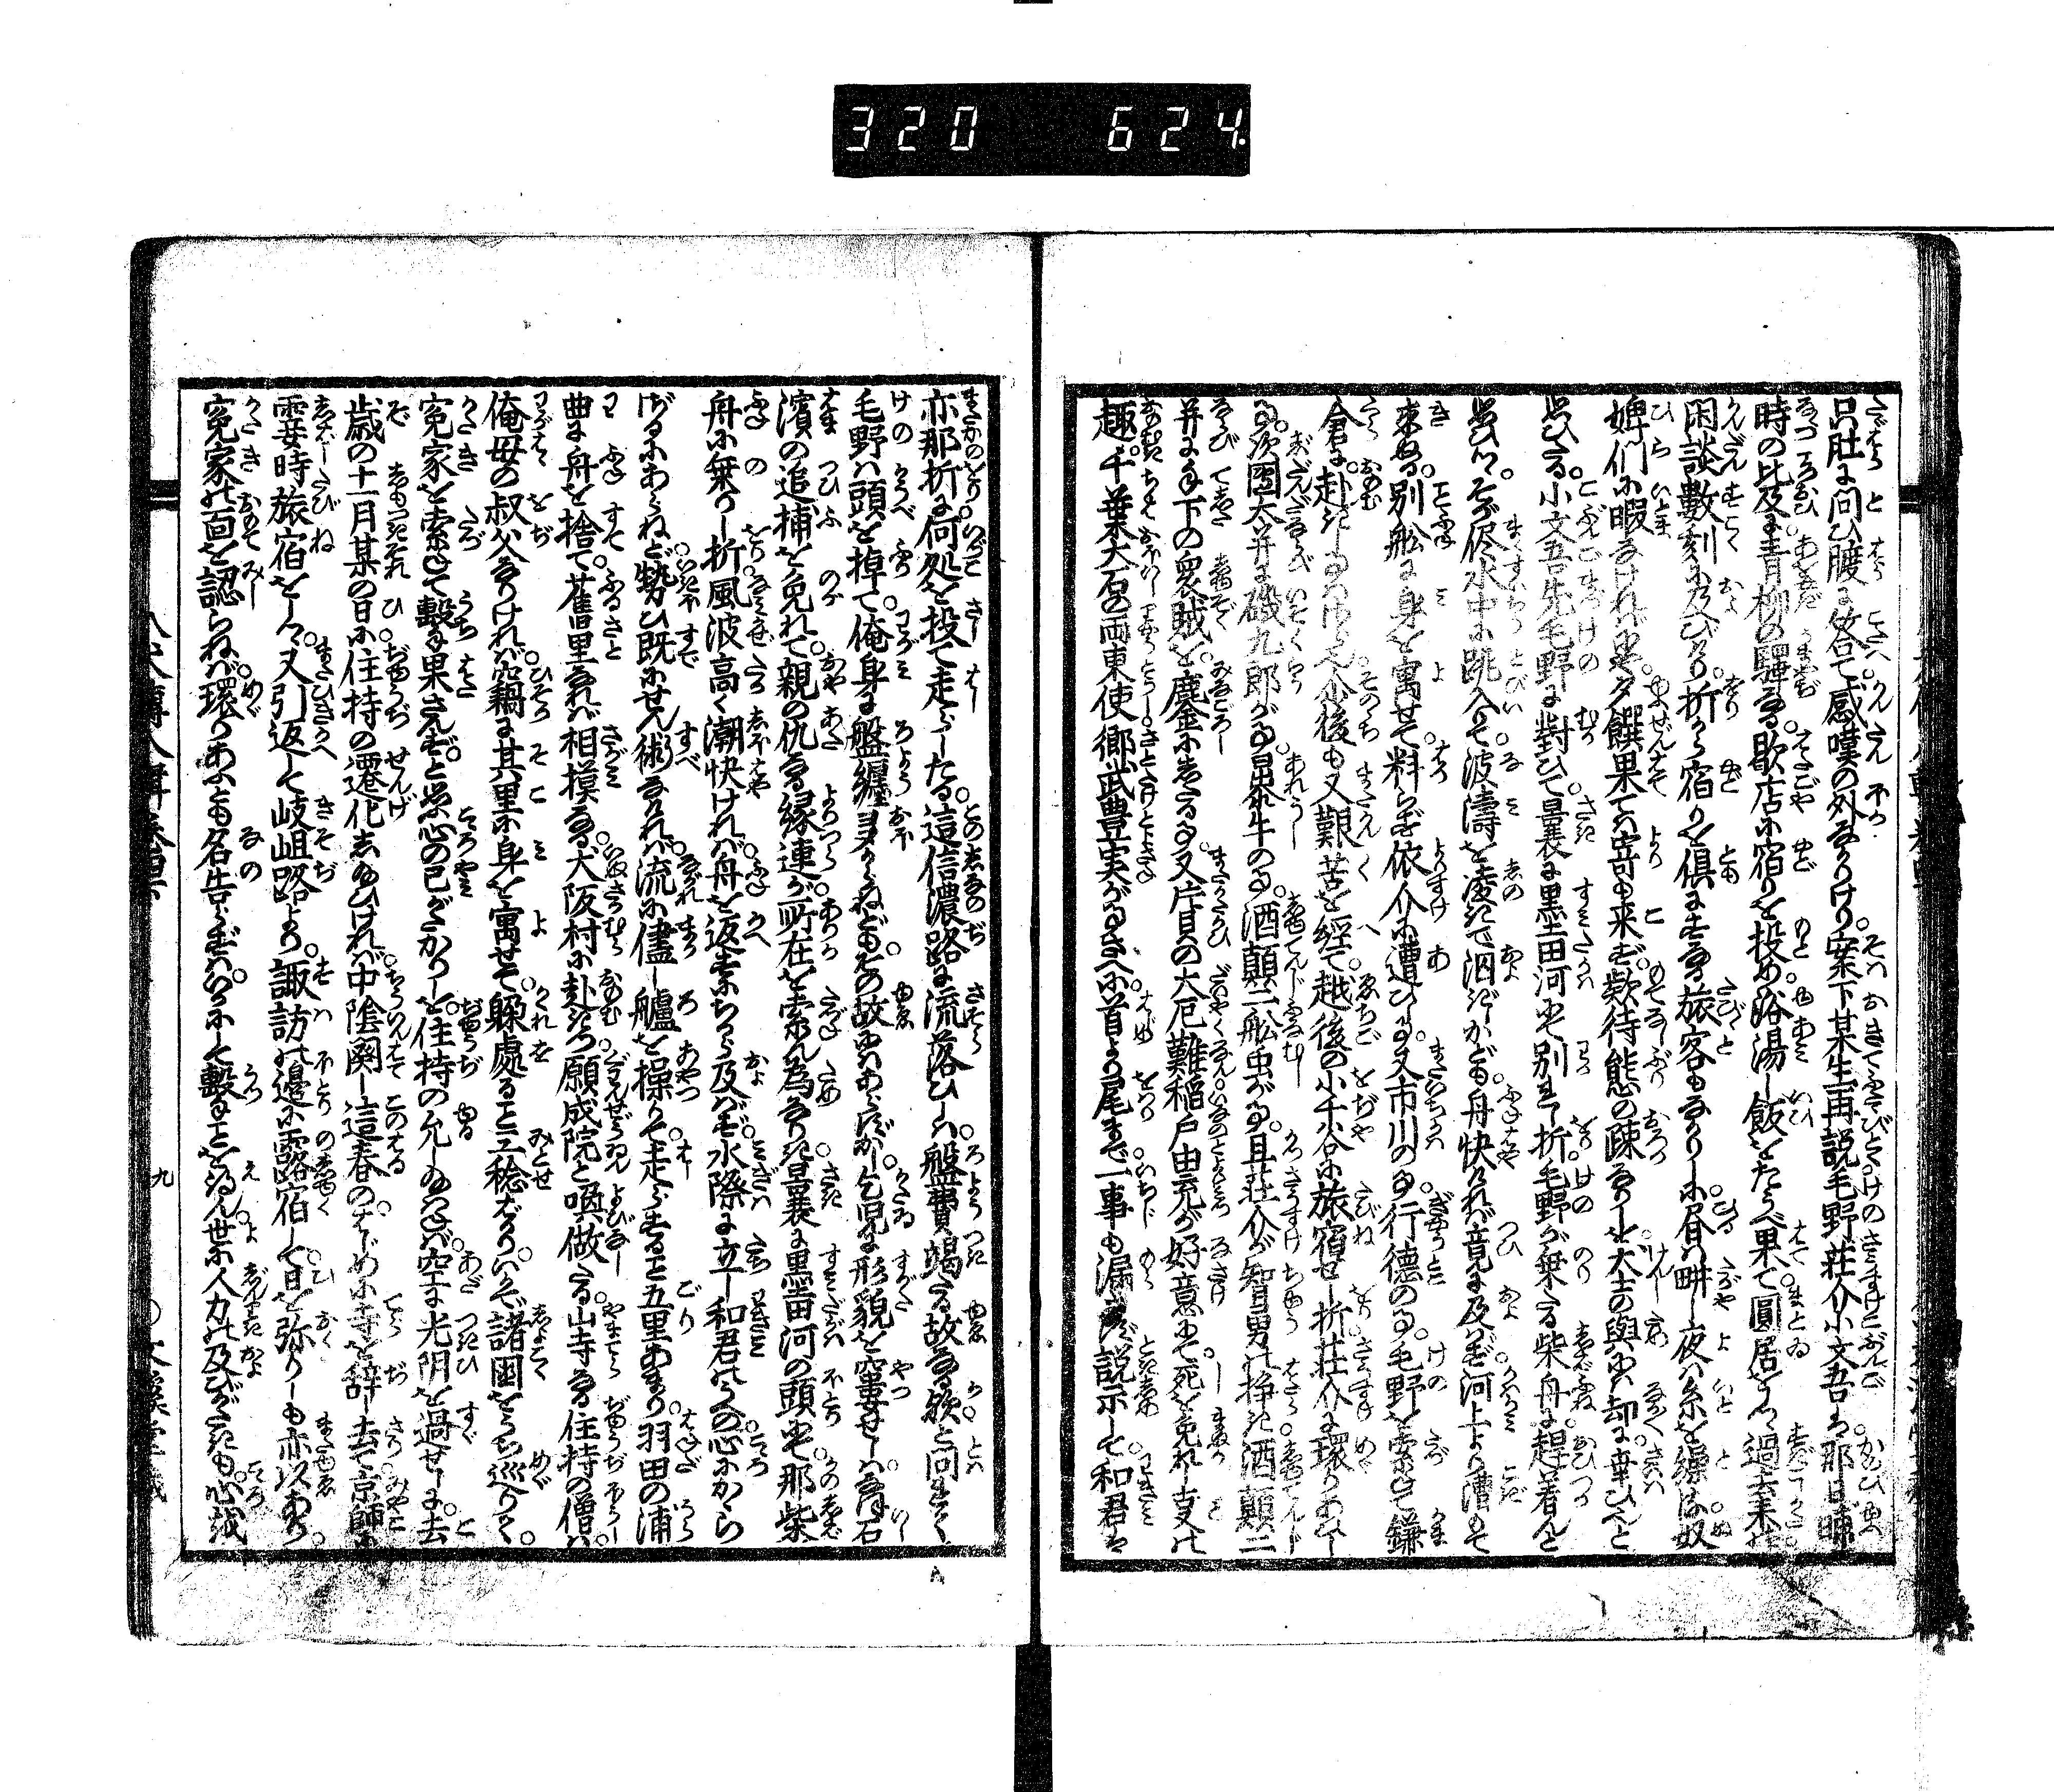 320 624.
只肚に問ひ腹に答て感嘆の外なかりけり案下某生再説毛野荘介小文吾は那日晡
時の比及に青柳の驛なる歇店に宿りを投め浴湯し飯をたうべ果て圓居をしつゝ過去来の
閑談數刻に及びけり折から宿りを倶にする旅客もなかりしに昼は畊し夜は糸を繰る奴
婢們に暇なければや夕饌果ては嵜も来ず欵待態の疎なりしを大吉の與には却に幸ひと
思ひたる小文吾先毛野に對ひて曩に墨田河にて別れし折毛野が乗たる柴舟に趕着んと
思ひつゝそが侭水中に跳入りて波濤を凌ぎて泅げども舟快ければ竟に及ばず河上より漕もて
来ぬる別舩に身を寓せて料らず依介に遭ひし事又市川の事行徳の事毛野を索ねて鎌
倉に赴きし事のみならで尓後も又艱苦を経て越後の小千谷に旅宿せし折荘介に環りあひし
事次團太并に磯九郎が事暴牛の事酒顛二舩虫が事且荘介が智勇の挊き酒顛二
并に手下の衆賊を鏖にしたる事又片貝の大厄難稲戸由充が好意にて死を免れし事の
趣千葉大石の両東使郷武豊実が事さへに首より尾まで一事も漏さず説示して和君は
亦那折に何処を投て走らしたる這信濃路に流落ひしは盤費竭たる故なる歟と問れて
毛野は頭を掉て俺身に盤纏多からねどもその故にはあらずかし乞児に形貌を窶せしは石
濱の追捕を免れて親の仇なる縁連が所在を索ん為なりき曩に墨田河の頭にて那柴
舟に乗りし折風波高く潮快ければ舟を返すにちから及ばず水際に立し和君のうへの心にかゝら
ざるにあらねど勢ひ既にせん術なければ流に儘し艫を操りて走らすること五里あまり羽田の浦
曲に舟を捨て舊里なれば相摸なる犬阪村に赴きつ願成院と喚做たる山寺なる住持の僧は
俺母の叔父なりければ窃に其里に身を寓せて躱處ること三稔ばかりいかで諸國をうち巡りて
寃家を索ねて撃も果さんずと思ふ心の已ざかりしを住持の允しゐへねば空に光阴を過せしに去
歳の十一月某の日に住持の遷化しゐひければ中陰闋し這春のはじめに寺を辞し去て京師に
霎時旅宿をしつ又引返して岐岨路より諏訪の邊に露宿して日を弥りしも亦以あり
寃家の面を認らねば環りあふとも名告らずはいかにして撃ことを得ん世に人力の及びがたきも心誠
九